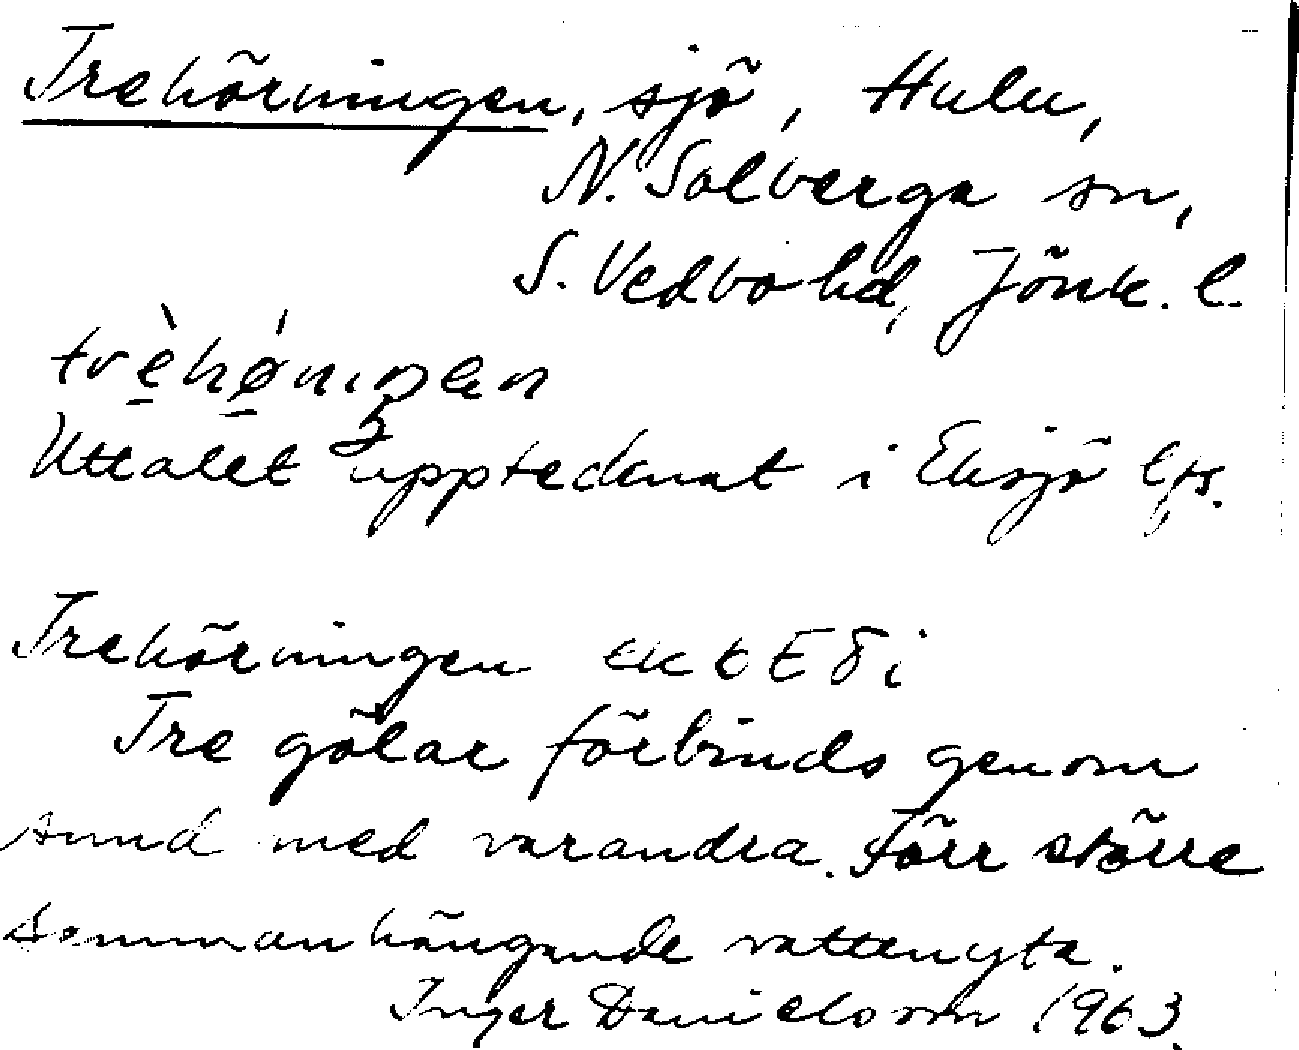 Trehörningen, sjö, Hulu,
N. Solberga sn,
S. Vedbo hd, Jönk. l.
trèhǿniŋen
Uttalet upptecknat i Eksjö lfs.
Trehörningen ek 6E8i
Tre gölar förbinds genom
sund med varandra. Förr större
sammanhängande vattenyta.
Inger Danielsson 1963.